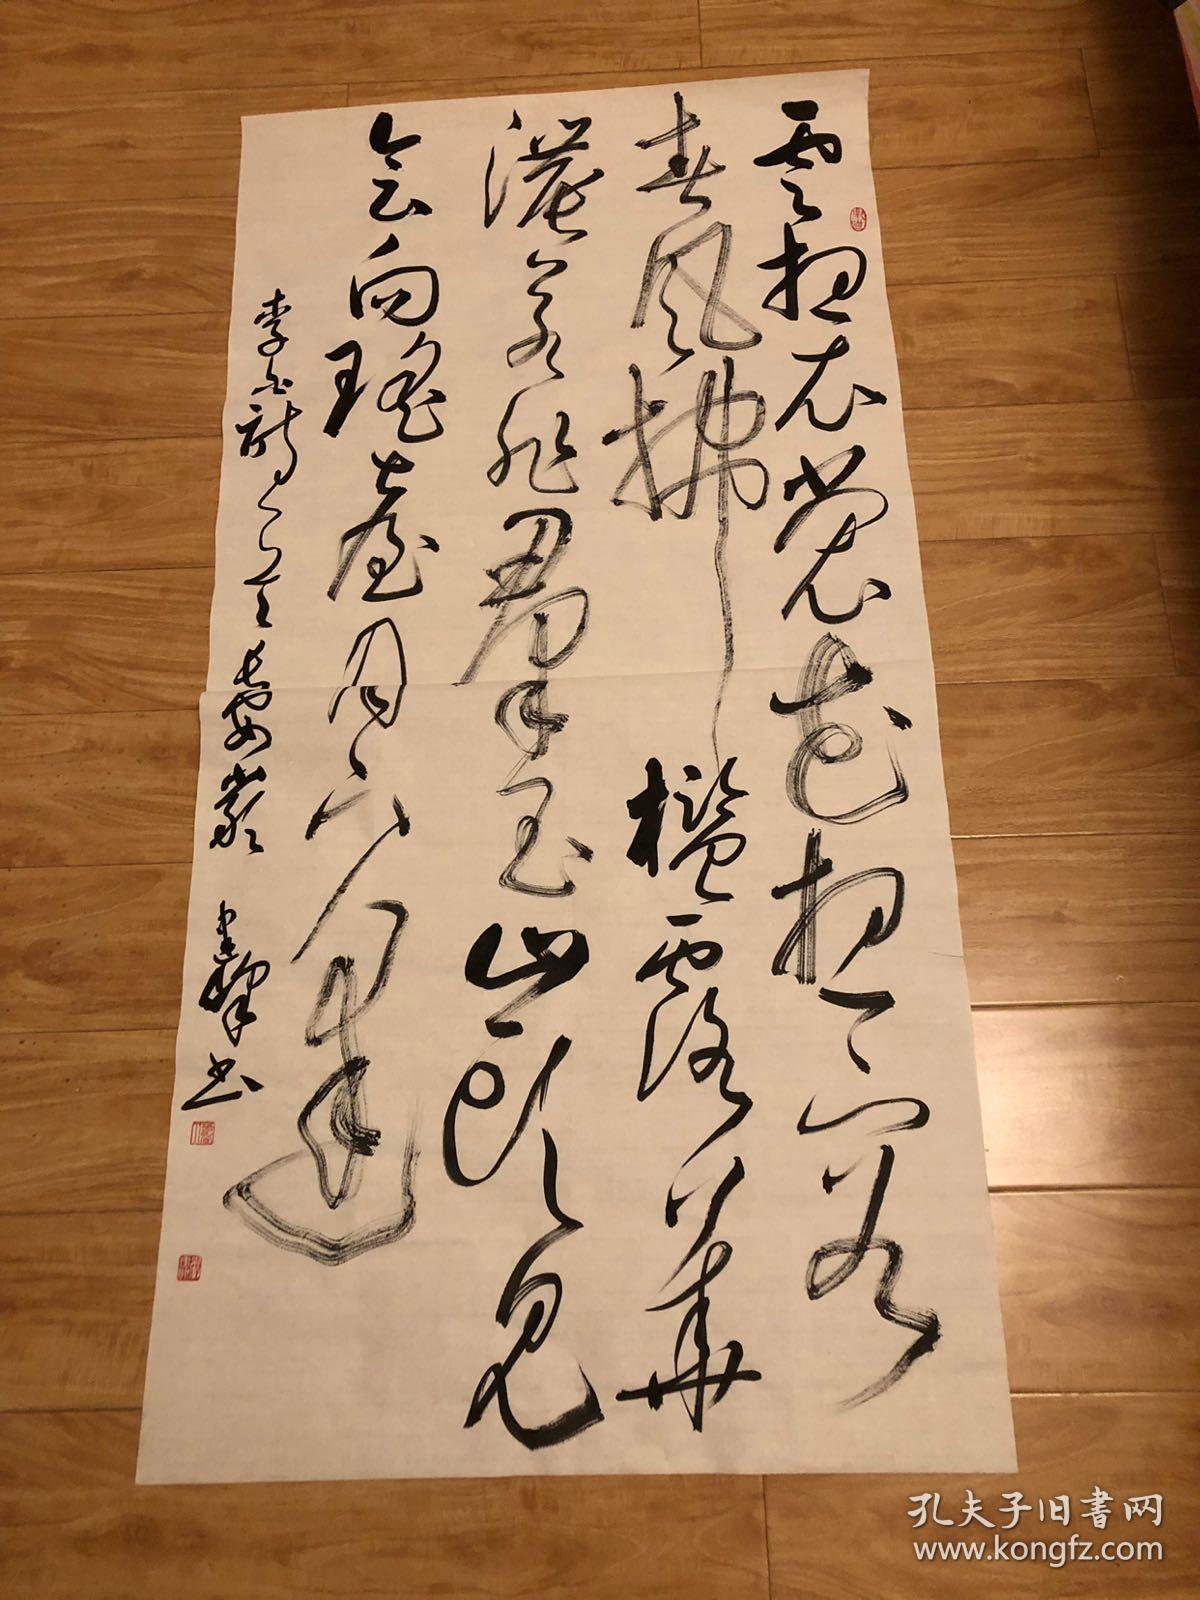 雲想衣裳花想容
春風拂檻露華
濃若非群玉山頭見
會向瑤臺月下逢
李白詩一首長安嚴建肇书
孔夫子旧書网
www.kongfz.com